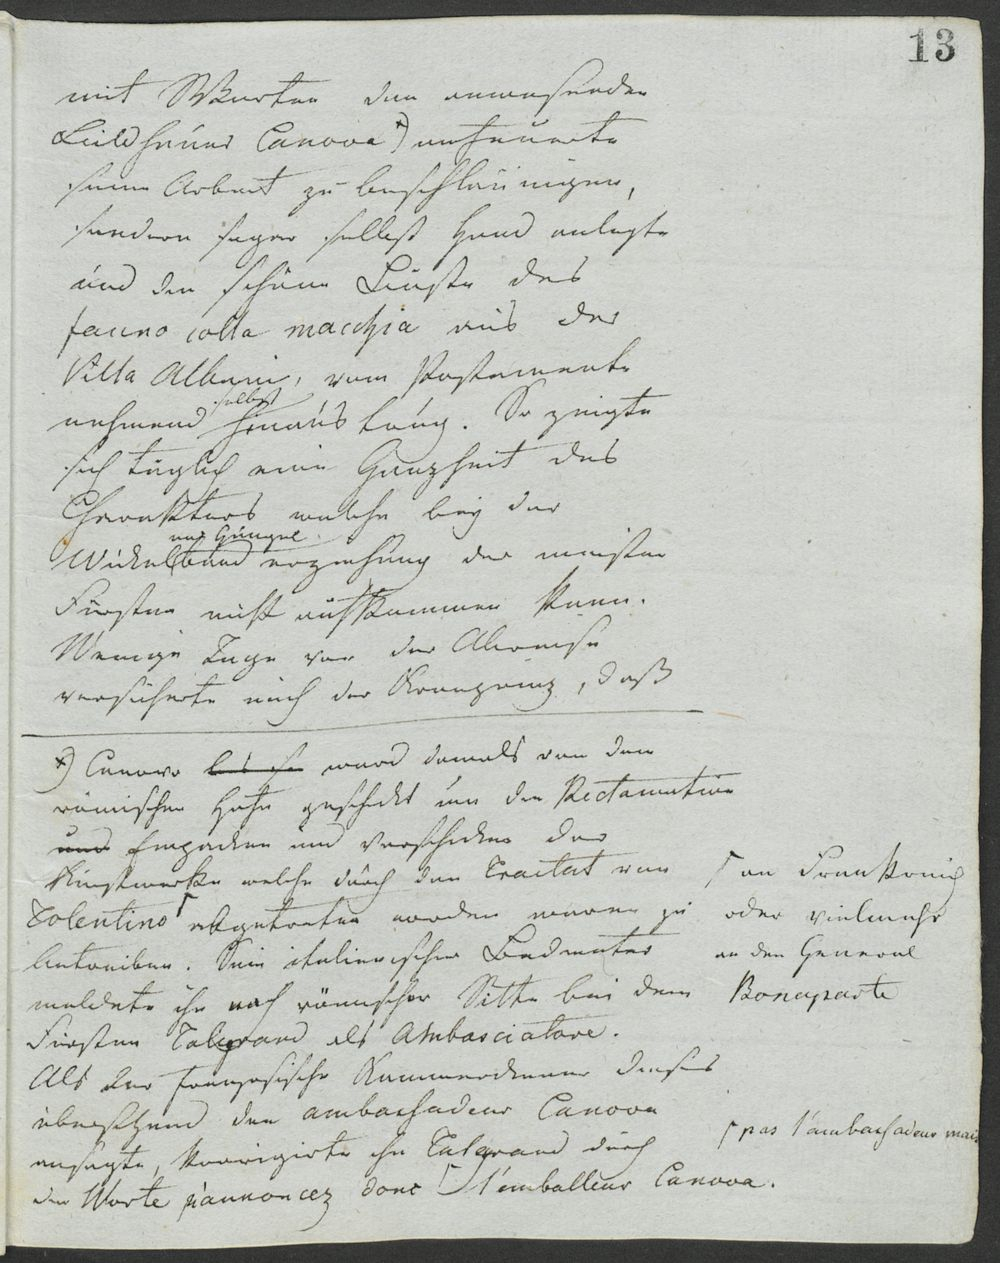 13
mit Worten den anwesenden
Bildhauer Canova *) anfeuerte
seine Arbeit zu beschleunigen,
sondern sogar selbst Hand anlegte
und den schöne Büste des
fauno colla macchia aus der
Villa Albani, vom Postamente
nehmend selbst hinaus trug. So zeigte
sich täglich eine Ganzheit des
Charakters welche bey der
Wickelband und Gängel erziehung der meisten
Fürsten nicht aufkommen kann.
Wenige Tage vor der Abreise
versicherte mich der Kronprinz, daß
*) Canova ward damals von dem
römischen Hofe geschickt um den Reclamation
und Einpacken und Verschicken der
Kunstwerke welche durch den Tractat von
Tolentino ⌈ abgetreten worden waren zu
betreiben. Sein italienischer Bedienter
meldete ihn nach römischer Sitte bei dem
Fürsten Taleyrand als Ambasciatore.
Als der französische Kammerdiener dieses
übersetzend den ambassadeur Canova
ansagte, korrigirte ihn Taleyrand durch
die Worte n'annoncez donc ⌈ l'emballeur Canova.
⌈ an Frankreich
oder vielmehr
an den General
Bonaparte
⌈ pas l'ambassadeur mais